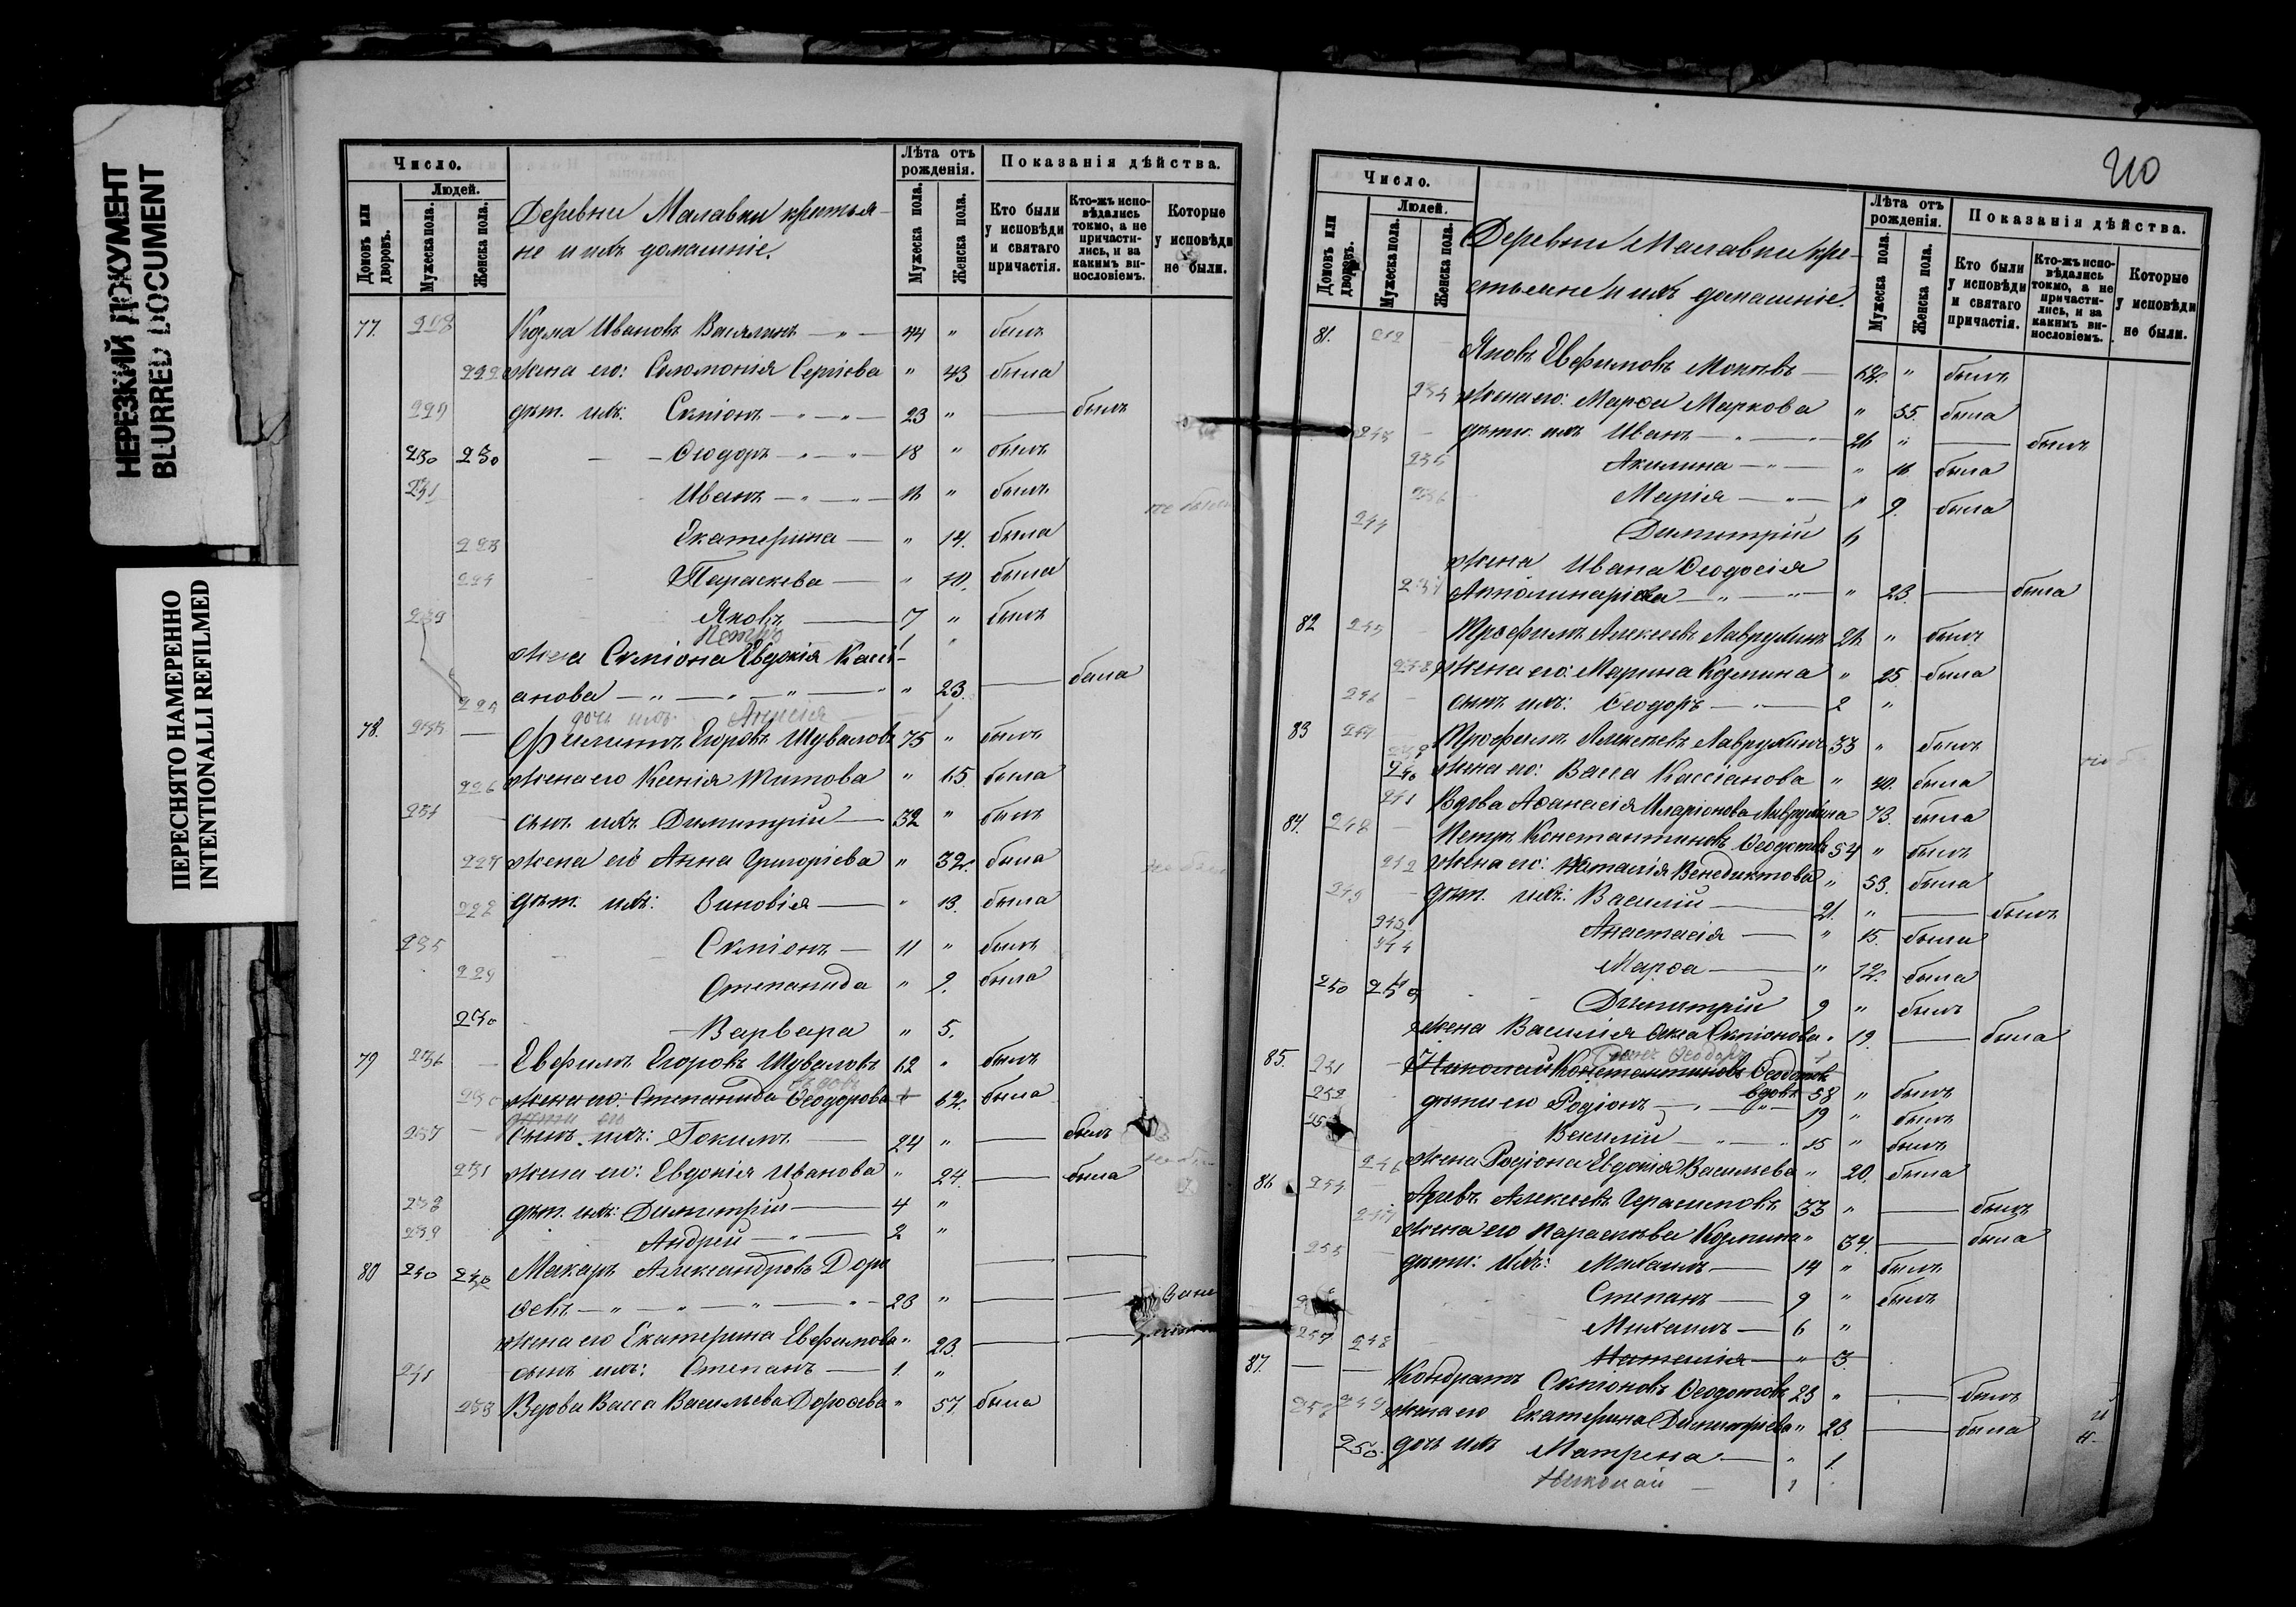 НЕРЕЗКИЙ ДОКУМЕНТ
BLURRED DOCUMENT
ПЕРЕСНЯТО НАМЕРЕННО
INTENTIONALLI REFILMED
Число.
Людей.
Домовъ или дворовъ.
Мужеска пола.
Женска пола.
Деревни Малавки крестья-
не и ихъ домашніе.
Лѣта отъ рожденія.
Мужеска пола.
Женска пола.
Показанія дѣйства.
Кто были у исповѣди и святаго причастія.
Кто-жъ испо-вѣдались токмо, а не причасти-лись, и за какимъ ви-нословіемъ.
Которые у исповѣди не были.
77. 228 Козма Ивановъ — " — 44 " былъ
222 жена его: Соломонія Сергіева " 43 былa
229 дѣт. ихъ: Скпіонъ — " — " — 23 " — былъ
230 230 — — Ѳеодоръ — " — " — 18 " былъ
231 Иванъ — " — " — 16 " былъ
223 Екатерина — " 14. была
224 Параскева — " 10. была
Яковъ — 7 " былъ
Петръ 1 "
жена Скпіона Евдокія Касі-
225 анова — " — " — " — " " 23. — была
дочь ихъ Анисія
78. 233 — Филиппъ Егоровъ Шуваловъ 75 " былъ
226 жена его Ксенія Титова " 65. была
234 сынъ ихъ Димитрій — 32 " былъ
227 жена его Анна Григоріева " 32. была
228 дѣт. ихъ: Зиновія — " 13. была
235 Скпіонъ — 11 " былъ
229 Степанида " 9. была
230 — Варвара " 5.
79 236 — Евфимъ Егоровъ Шуваловъ 62 " былъ
вдовъ
жена его: Степанида Ѳеодорова 62. была
237 сынъ ихъ: Іокимъ — 24 " — былъ
231 жена его: Евдокія Иванова " 24. — была
238 дѣт. ихъ: Димитрій — 4 "
239 Андрей — " — 2 "
80 240 240 Макаръ Александровъ Доро
ѳевъ — " — " — " — " — 23 " — —
жена его Екатерина Евфимова " 23. — —
241 сынъ ихъ: Степанъ — 1. "
233 Вдова Васса Васильева Дороѳева " 57. была
210
Число.
Людей.
Домовъ или дворовъ.
Мужеска пола.
Женска пола.
Деревни Малавки кре-
стьяне и ихъ домашніе.
Лѣта отъ рожденія.
Мужеска пола.
Женска пола.
Показанія дѣйства.
Кто были у исповѣди и святаго причастія.
Кто-жъ испо-вѣдались токмо, а не причасти-лись, и за какимъ ви-нословіемъ.
Которые у исповѣди не были.
81. 242 Яковъ Евфимовъ — 62. " былъ
234 жена его: Марѳа Маркова " 55. была
243 — дѣти ихъ Иванъ — " — 26 " — былъ
235 Акилина — " — " 16. была
236 Марія — " — " 9. была
244 Димитрій 6
жена Ивана Ѳеодосія
237 Апполинаріева — " — " — " 23. — была
82 245 — Трофимъ Алексеевъ Лаврухинъ 26. " былъ
238 жена его: Марина Козмина " 25. была
246 — сынъ ихъ: Ѳеодоръ — " — 2 "
83 247 Трофимъ Алексеевъ Лаврухинъ 33 " былъ
240 жена его: Васса Кассіанова " 40. была
241 Вдова Аѳанасія Иларіонова Лаврухина 73. была
84. 248 — Петръ Константиновъ Ѳеодотовъ 54 " былъ
242 жена его: Наталія Венедиктова " 53. была
249 — дѣт. ихъ: Василій — 21. " — былъ
243 Анастасія — " 15. была
244 Марѳа — " 12. была
250 Димитрій 9 " былъ
жена Василія Скпіонова " 19. — была
85. 251 — Николай Константиновъ Ѳеодотовъ
вдовъ 58 " былъ
252 дѣти его Родіонъ — " — " — 19 " былъ
Василій — " — " 15 " былъ
246 жена Родіона Евдокія Васильева " 20. была
86. 254 — Алексеевъ Герасимовъ 33 " — былъ
247 жена его Параскева Козмина " 34. — была
255 — дѣти: ихъ: Михаилъ — 14 " былъ
Степанъ — 9 " былъ
257 248 Михаилъ — 6 "
Наталія — " 3.
87. — — Кондратъ Скпіоновъ Ѳеодотовъ 23 " — былъ
258 249 жена его Екатерина Димитріева " 23. — была
250. дочь ихъ Матрена — " 1.
Николай — 1